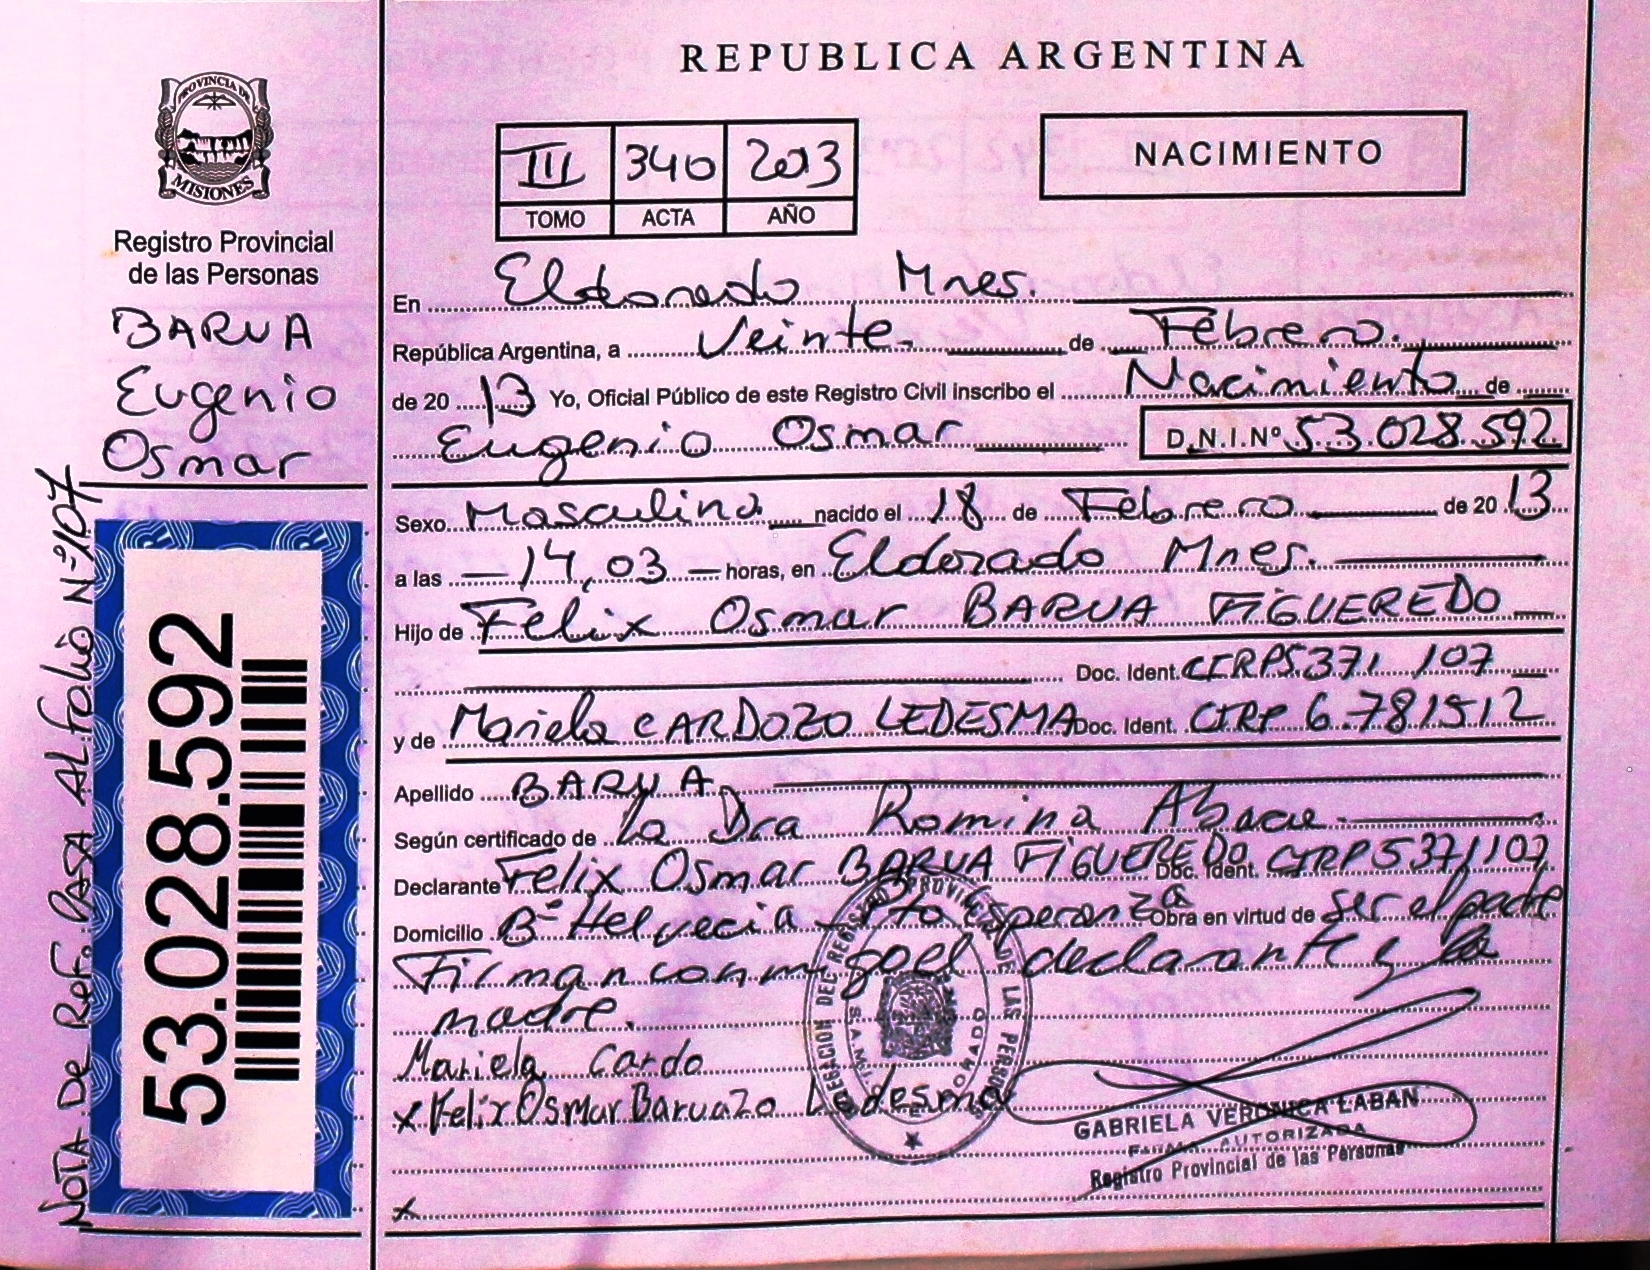 REPUBLICA ARGENTINA
PROVINCIA DE
MISIONES
Registro Provincial
de las Personas
BARUA
Eugenio
Osmar
NOTA DE Ref. PASA AL folio Nº 107
53.028.592
III 340 2013
TOMO ACTA AÑO
NACIMIENTO
En Eldorado Mnes.
República Argentina, a Veinte. de Febrero.
de 20 13 Yo, Oficial Público de este Registro Civil inscribo el Nacimiento de
Eugenio Osmar D.N.I.Nº 53.028.592
Sexo Masculino nacido el 18 de Febrero de 20 13
a las 14,03 horas, en Eldorado Mnes.
Hijo de Felix Osmar BARUA FIGUEREDO
Doc. Ident. CIRP5.371 107
y de Mariela CARDOZO LEDESMA Doc. Ident. CIRP 6.781512
Apellido BARUA
Según certificado de La Dra Romina
Declarante Felix Osmar BARUA FIGUEREDO Doc. Ident. CIRP5371107
Domicilio Bº Helvecia Pto Esperanza Obra en virtud de ser el padre
Firman conmigo el declarante y la
madre.
Mariela Cardo
x Felix Osmar Barua zo Ledesma
GABRIELA VERONICA LABAN
FIRMA AUTORIZADA
Registro Provincial de las Personas
x